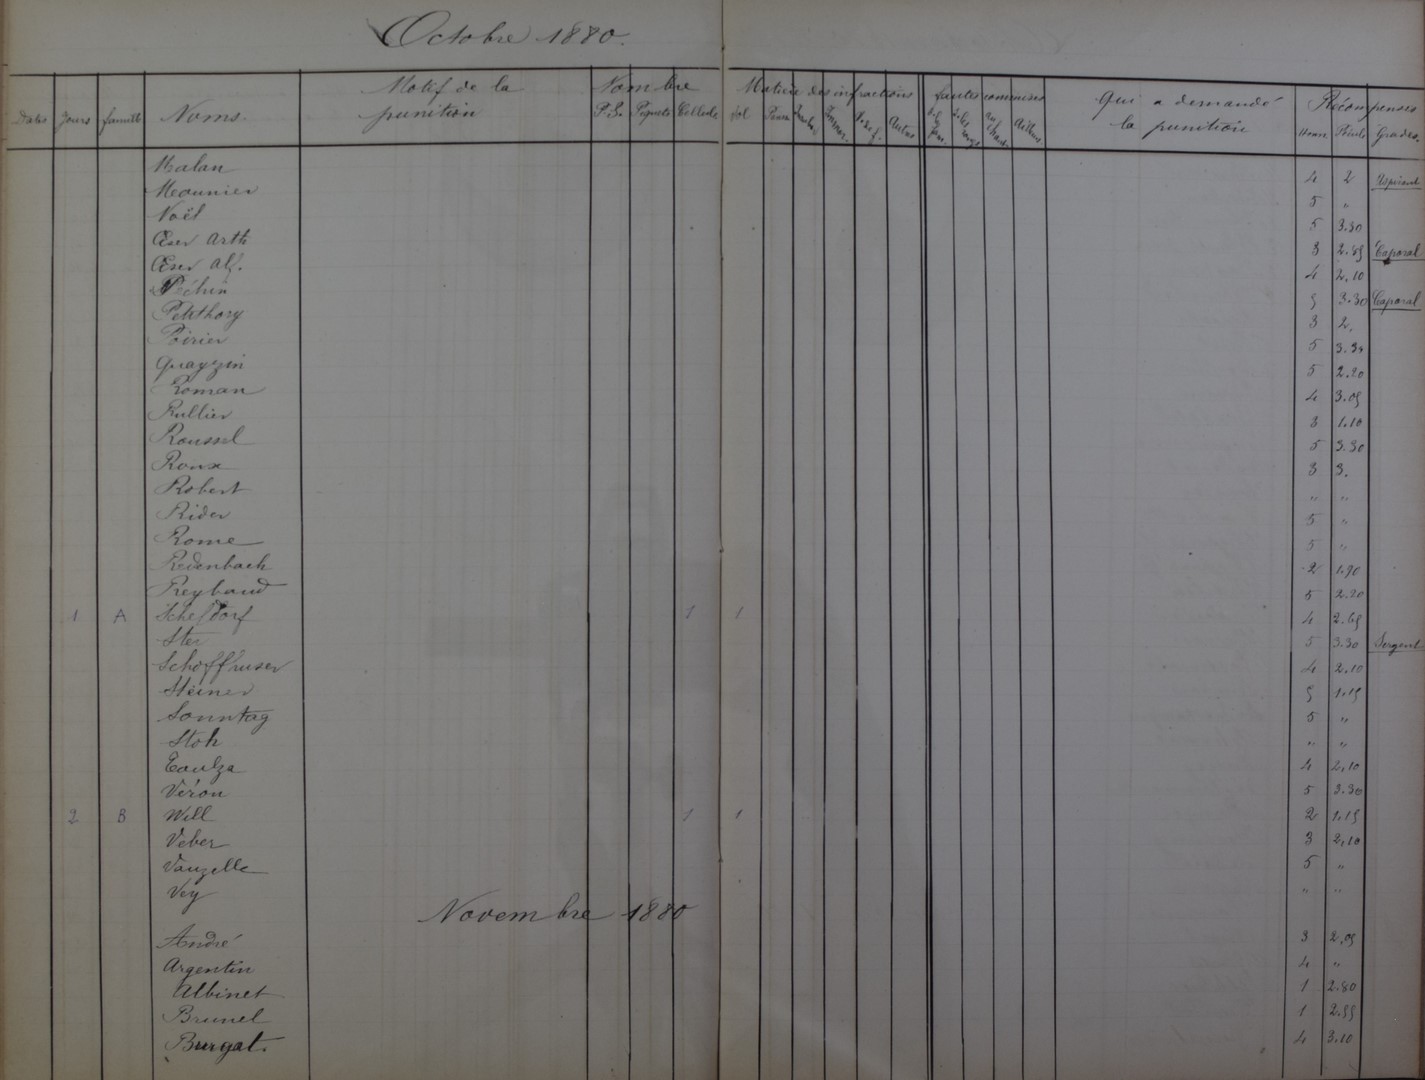 Octobre 1880.
Dates Jours famille Noms. Motif de la punition Nombre P.S. Piquets Cellule Vol Matière des infractions Autres fautes commises Ailleurs Qui a demandé la punition Récompenses Points Grades.
Malan 4 2 Aspirant
Meounier 5 "
Noël 5 3.30
Œser Arth 3 2.85 Caporal
Œser Alf. 4 2,10
Péchin 5 3.30 Caporal
Petithory 3 2,
Poirier 5
Quayzin 5 2.20
Roman 4 3.05
Rullier 3 1.10
Roussel 5 3.30
Roux 3 3.
Robert " "
Rider 5 "
Rome 5 "
Redenbach 2 1.90
Reybaud 5 2.20
1 A Schefdorf 1 1 4 2.65
Ster 5 3.30 Sergent
Schoffhuser 4 2.10
Steiner 5 1.15
Sonntag 5 "
Stoh " "
4 2,10
Véron 5 3.30
2 B Will 1 1 2 1.15
Veber 3 2,10
Vauzelle 5 "
Vey " "
Novembre 1880
André 3 2,05
Argentin 4 "
Albinet 1 2.80
Brunel 1 2.55
Burgat. 4 3.10